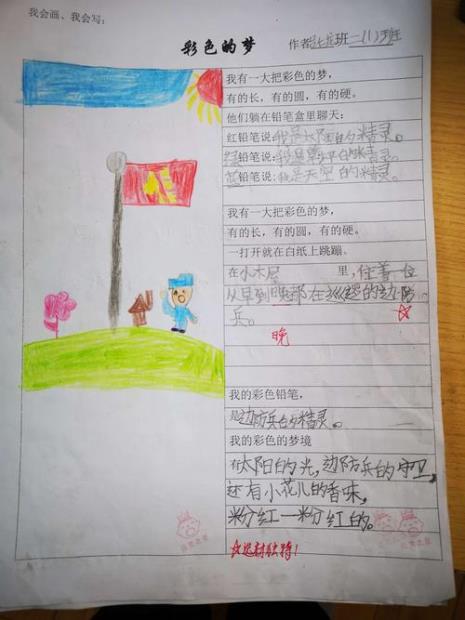 我会画、我会写:
彩色的梦
作者 班二(1)班
我有一大把彩色的梦,
有的长,有的圆,有的硬。
他们躺在铅笔盒里聊天:
红铅笔说:我是太阳的精灵。
绿铅笔说:我是草坪的精灵。
蓝铅笔说:我是天空的精灵。
我有一大把彩色的梦,
有的长,有的圆,有的硬。
一打开就在白纸上跳蹦。
在小木屋里,住着一位
从早到晚都在巡逻的边防
兵。
晚
我的彩色铅笔,
是边防兵的精灵。
我的彩色的梦境
有太阳的光,边防兵的守卫,
还有小花儿的香味,
粉红—粉红的。
独特!